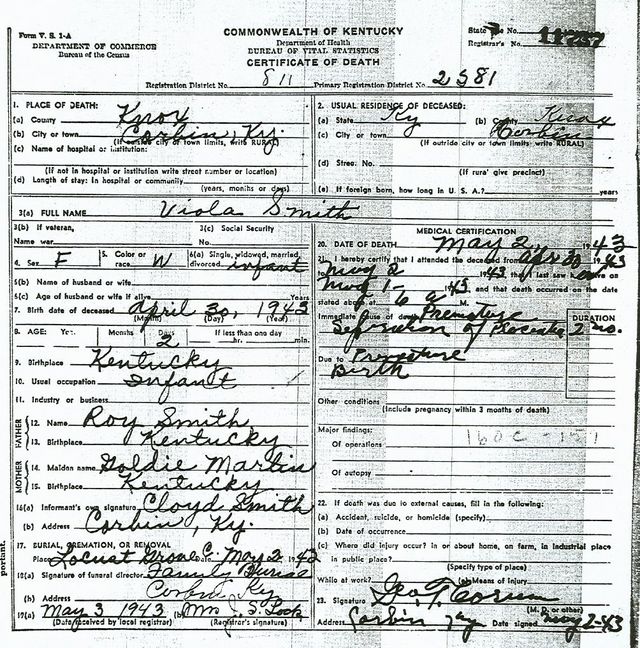 Form V. S. 1-A
DEPARTMENT OF COMMERCE
Bureau of the Census
COMMONWEALTH OF KENTUCKY
Department of Health
BUREAU OF VITAL STATISTICS
CERTIFICATE OF DEATH
State File No.
Registrar's No.
Registration District No. 811 Primary Registration District No. 2581
1. PLACE OF DEATH:
(a) County Knox
(b) City or town Corbin, Ky.
(If outside city or town limits, write RURAL)
(c) Name of hospital or institution:
(If not in hospital or institution write street number or location)
(d) Length of stay: In hospital or community
(years, months or days)
2. USUAL RESIDENCE OF DECEASED:
(a) State Ky (b) County Knox
(c) City or town Corbin
(If outside city or town limits write RURAL)
(d) Street No.
(If rural give precinct)
(e) If foreign born, how long in U. S. A.? years
3(a) FULL NAME Viola Smith
3(b) If veteran,
Name war
3(c) Social Security
No.
4. Sex F 5. Color or race W 6(a) Single, widowed, married, divorced infant
5(b) Name of husband or wife
5(c) Age of husband or wife if alive Years
7. Birth date of deceased April 30, 1943
(Month) (Day) (Year)
8. AGE: Yrs. Months Days 2 If less than one day hr. min.
9. Birthplace Kentucky
10. Usual occupation Infant
11. Industry or business
FATHER
12. Name Roy Smith
13. Birthplace Kentucky
MOTHER
14. Maiden name Goldie Martin
15. Birthplace Kentucky
16(a) Informant's own signature Cloyd Smith
(b) Address Corbin, Ky.
17. BURIAL, CREMATION, OR REMOVAL
Place Locust Grove C. May 2 1943
18(a) Signature of funeral director Family Burial
(b) Address Corbin Ky
19(a) May 3 1943 (b) Mrs J. S. Lock
(Date received by local registrar) (Registrar's signature)
MEDICAL CERTIFICATION
20. DATE OF DEATH May 2, 1943
21. I hereby certify that I attended the deceased from Apr 30 1943
to May 2 1943, that I last saw alive on
May 1- 1943 and that death occurred on the date
stated above at 6 a M.
Immediate cause of death Premature
Separation of Placenta
DURATION
2 mo.
Due to Premature
Birth
Other conditions
(Include pregnancy within 3 months of death)
Major findings:
Of operations
Of autopsy
22. If death was due to external causes, fill in the following:
(a) Accident, suicide, or homicide (specify)
(b) Date of occurrence
(c) Where did injury occur? in or about home, on farm, in industrial place
in public place?
(Specify type of place)
While at work? (e) Means of injury
23. Signature Geo. T. Corum
(M. D. or other)
Address Corbin Ky Date signed May 2-43
portant.